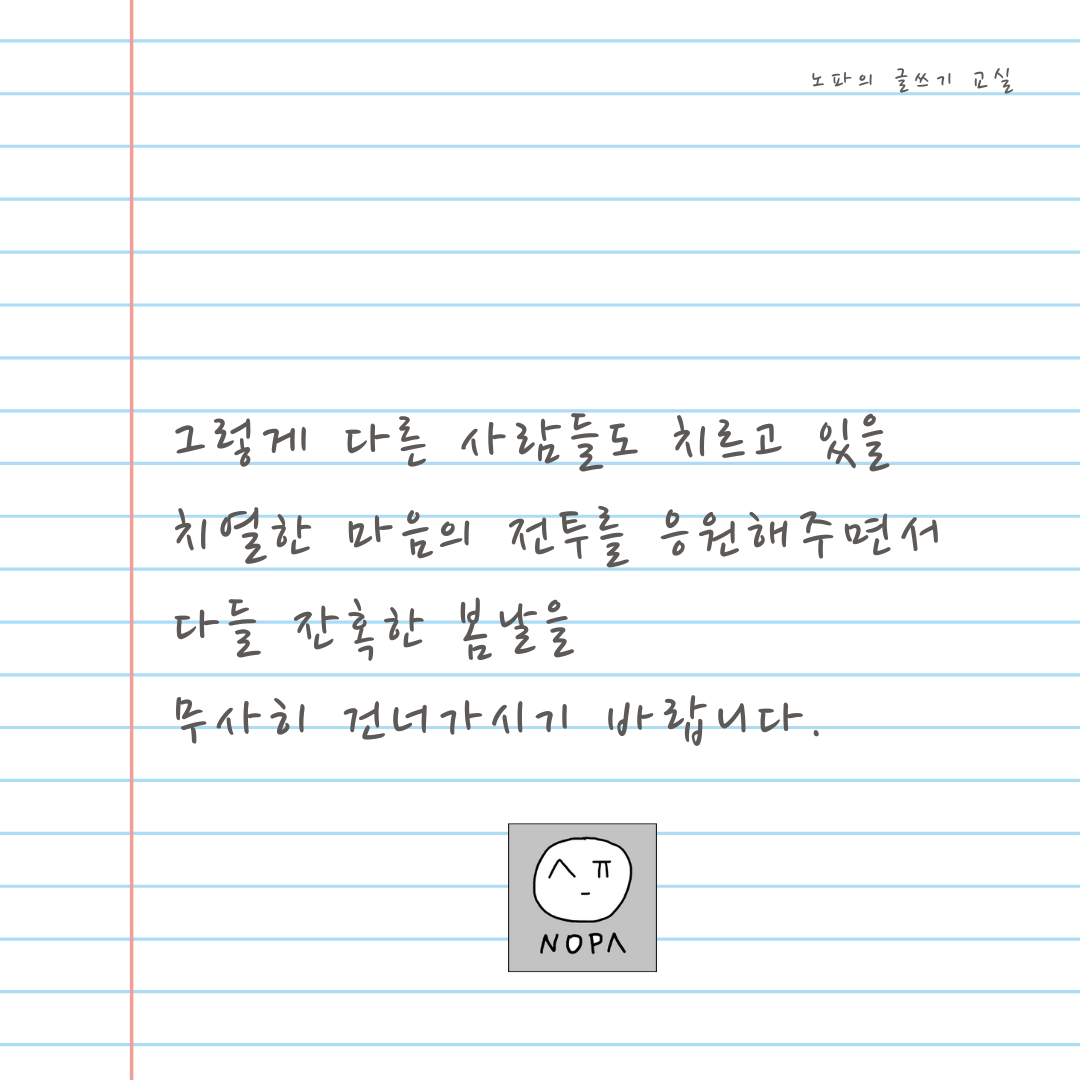 노파의 글쓰기 교실
그렇게 다른 사람들도 치르고 있을
치열한 마음의 전투를 응원해주면서
다들 잔혹한 봄날을
무사히 건너가시기 바랍니다.
NOPA